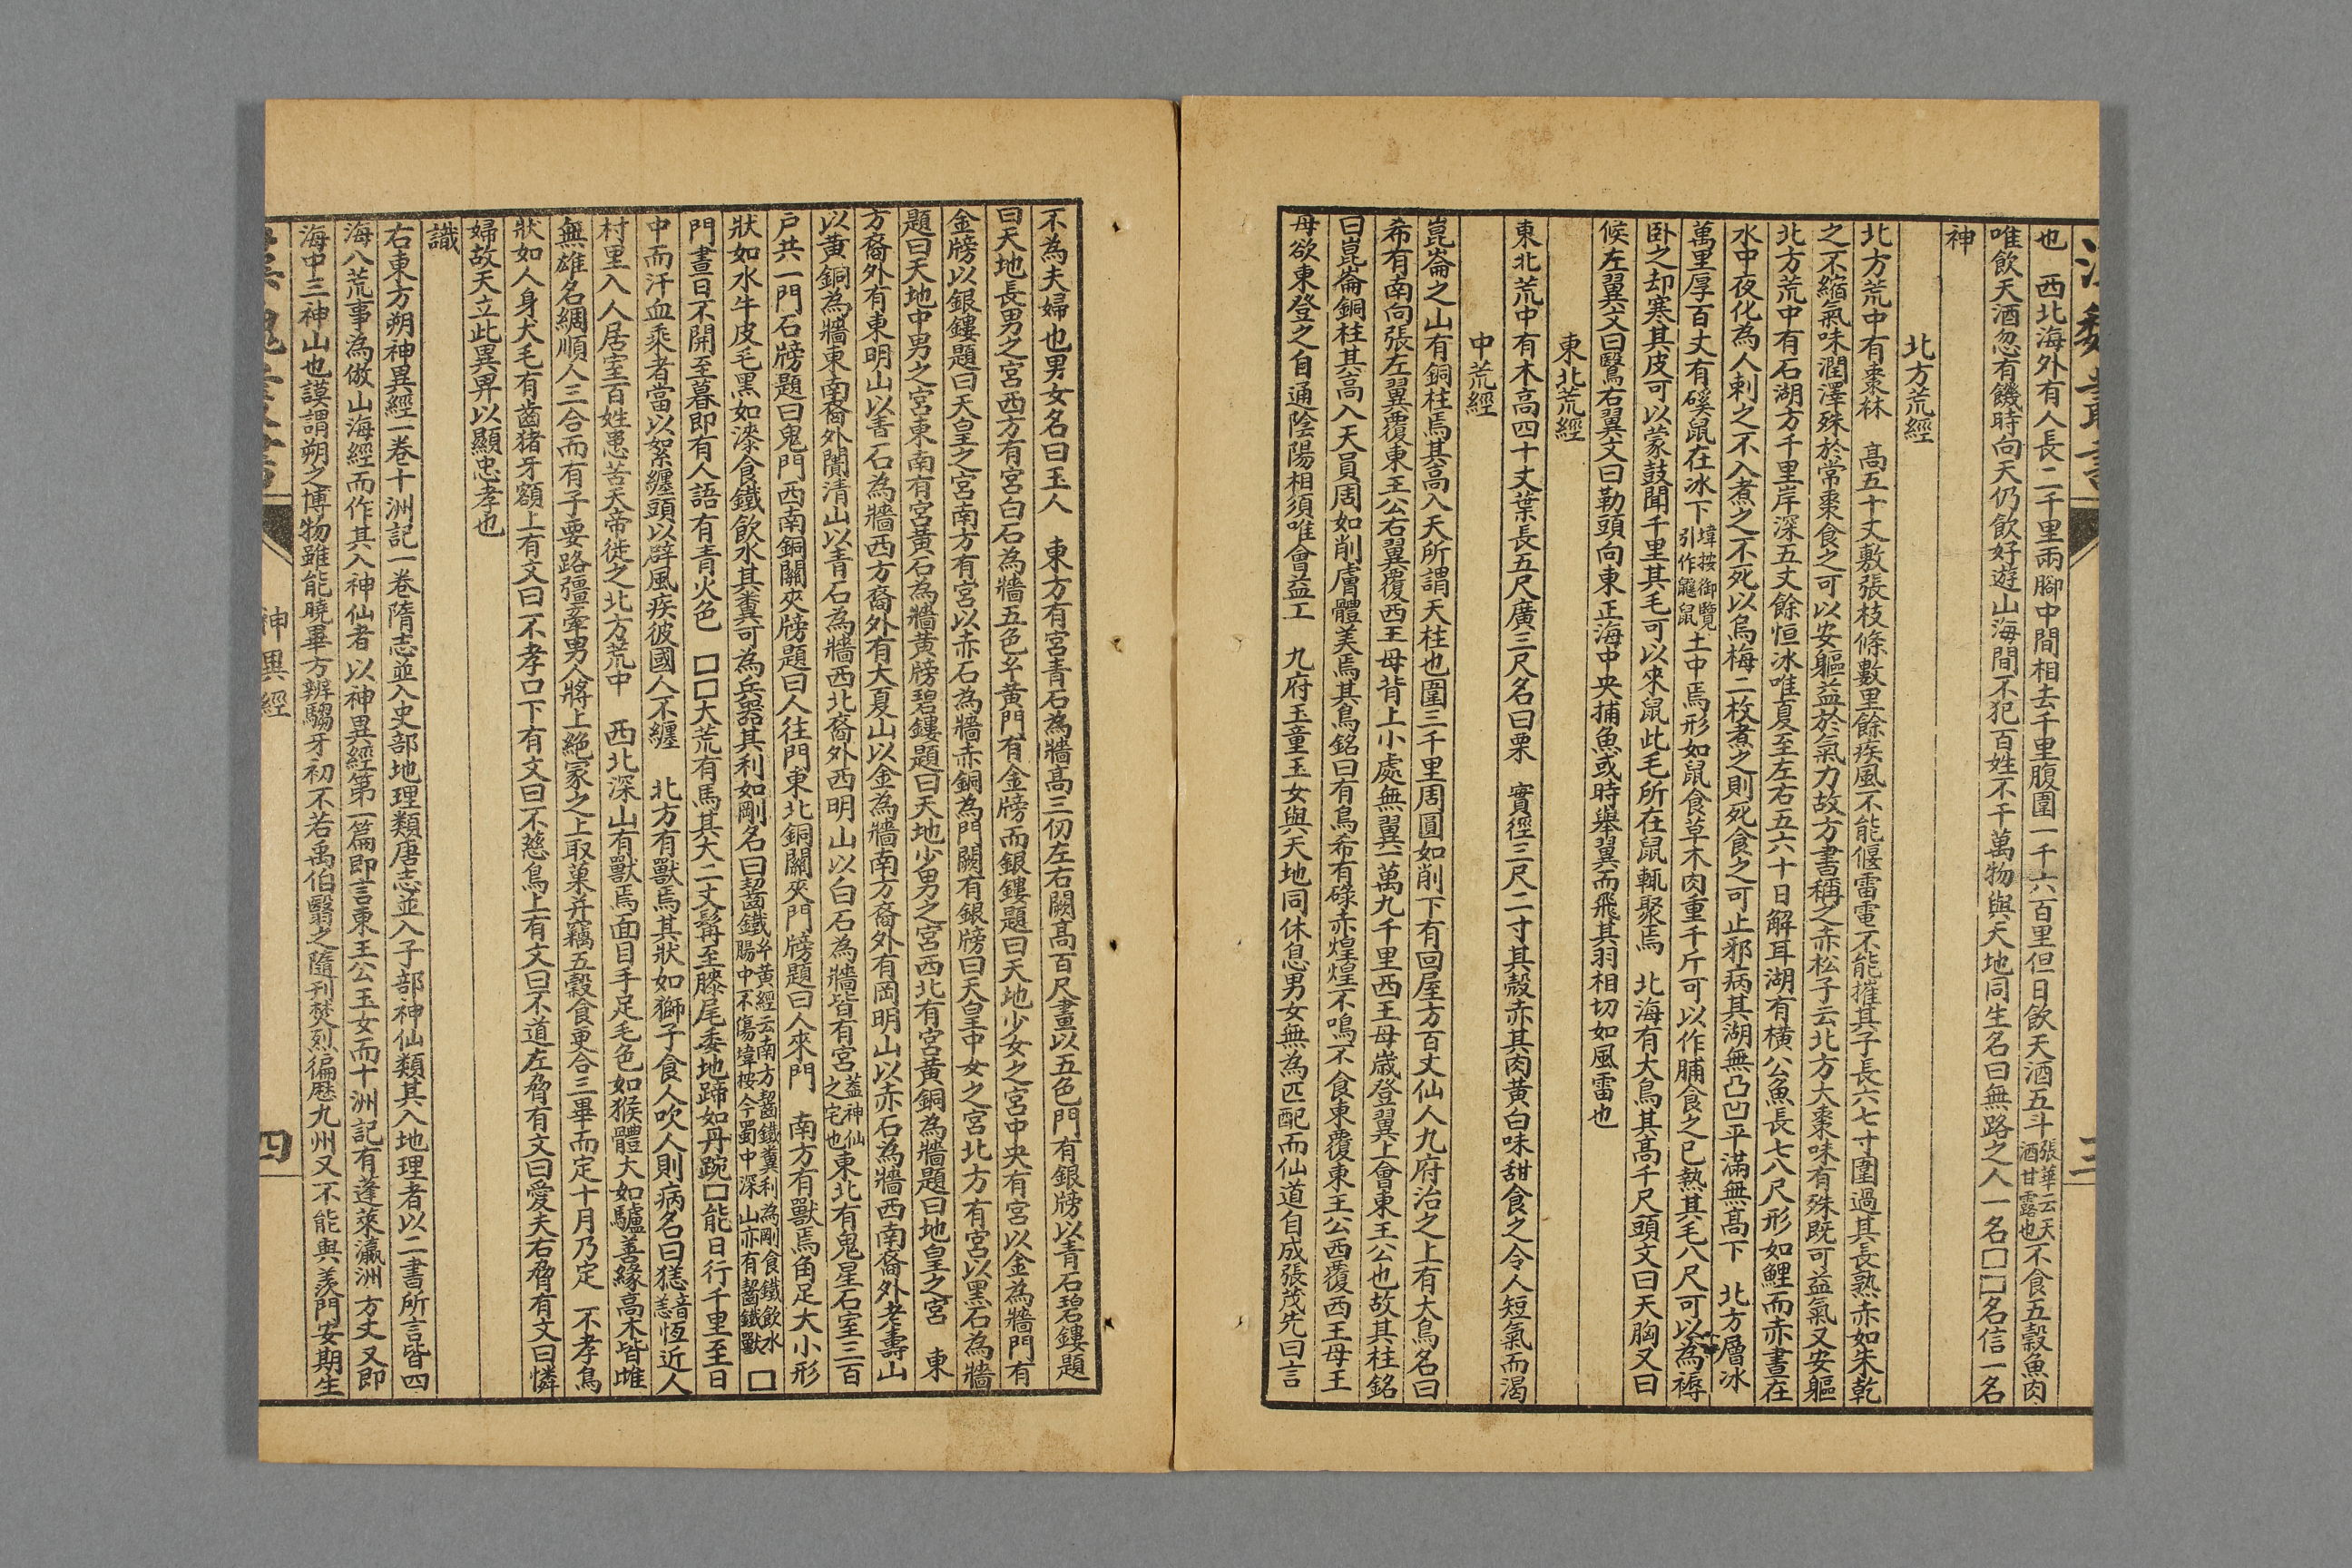 也　西北海外有人長二千里兩腳中間相去千里腹圍一千六百里但日飲天酒五斗張華云天酒甘露也不食五穀魚肉
唯飲天酒忽有饑時向天仍飲好遊山海間不犯百姓不干萬物與天地同生名曰無路之人一名□□名信一名
神
北方荒經
北方荒中有棗林　高五十丈敷張枝條數里餘疾風不能偃雷電不能摧其子長六七寸圍過其長熟赤如朱乾
之不縮氣味潤澤殊於常棗食之可以安軀益於氣力故方書稱之赤松子云北方大棗味有殊既可益氣又安軀
北方荒中有石湖方千里岸深五丈餘恒冰唯夏至左右五六十日解耳湖有橫公魚長七八尺形如鯉而赤晝在
水中夜化為人刺之不入煮之不死以烏梅二枚煮之則死食之可止邪病其湖無凸凹平滿無高下　北方層冰
萬里厚百丈有磎鼠在冰下㙔按御覽引作鼷鼠土中焉形如鼠食草木肉重千斤可以作脯食之已熱其毛八尺可以為褥
卧之却寒其皮可以蒙鼓聞千里其毛可以來鼠此毛所在鼠輒聚焉　北海有大鳥其高千尺頭文曰天胸文曰
候左翼文曰鷖右翼文曰勒頭向東正海中央捕魚或時舉翼而飛其羽相切如風雷也
東北荒經
東北荒中有木高四十丈葉長五尺廣三尺名曰栗　實徑三尺二寸其殼赤其肉黃白味甜食之令人短氣而渴
中荒經
崑崙之山有銅柱焉其高入天所謂天柱也圍三千里周圓如削下有回屋方百丈仙人九府治之上有大鳥名曰
希有南向張左翼覆東王公右翼覆西王母背上小處無羽一萬九千里西王母歲登翼上會東王公也故其柱銘
曰崑崙銅柱其高入天員周如削膚體美焉其鳥銘曰有鳥希有碌赤煌煌不鳴不食東覆東王公西覆西王母王
母欲東登之自通陰陽相須唯會益工　九府玉童玉女與天地同休息男女無為匹配而仙道自成張茂先曰言
不為夫婦也男女名曰玉人　東方有宮青石為牆高三仞左右闕高百尺畫以五色門有銀牓以青石碧鏤題
曰天地長男之宮西方有宮白石為牆五色玄黃門有金牓而銀鏤題曰天地少女之宮中央有宮以金為牆門有
金牓以銀鏤題曰天皇之宮南方有宮以赤石為牆赤銅為門闕有銀牓曰天皇中女之宮北方有宮以黑石為牆
題曰天地中男之宮東南有宮黃石為牆黃牓碧鏤題曰天地少男之宮西北有宮黃銅為牆題曰地皇之宮　東
方裔外有東明山以青石為牆西方裔外有大夏山以金為牆南方裔外有岡明山以赤石為牆西南裔外老壽山
以黃銅為牆東南裔外闐清山以青石為牆西北裔外西明山以白石為牆皆有宮蓋神仙之宅也東北有鬼星石室三百
戶共一門石牓題曰鬼門西南銅關夾牓題曰人往門東北銅關夾門牓題曰人來門　南方有獸焉角足大小形
狀如水牛皮毛黑如漆食鐵飲水其糞可為兵器其利如剛名曰齧鐵玄黃經云南方齧鐵糞利為剛食鐵飲水腸中不傷㙔按今蜀中深山亦有齧鐵獸□
門晝日不開至暮即有人語有青火色　□□大荒有馬其大二丈髯至膝尾委地蹄如丹踠□能日行千里至日
中而汗血乘者當以絮纏頭以辟風疾彼國人不纏　北方有獸焉其狀如獅子食人吹人則病名曰㺊音恙恆近人
村里入人居室百姓患苦天帝徙之北方荒中　西北深山有獸焉面目手足毛色如猴體大如驢善緣高木皆雌
無雄名綢順人三合而有子要路彊牽男人將上絕冢之上取菓并竊五穀食更合三畢而定十月乃定　不孝鳥
狀如人身犬毛有齒猪牙額上有文曰不孝口下有文曰不慈鳥上有文曰不道左脅有文曰愛夫右脅有文曰憐
婦故天立此異畀以顯忠孝也
識
右東方朔神異經一卷十洲記一卷隋志並入史部地理類唐志並入子部神仙類其入地理者以二書所言皆四
海八荒事為倣山海經而作其入神仙者以神異經第一篇即言東王公玉女而十洲記有蓬萊瀛洲方丈又即
海中三神山也謨謂朔之博物雖能曉畢方辨騶牙初不若禹伯翳之隨刊焚烈徧歷九州又不能與羨門安期生
神異經
四